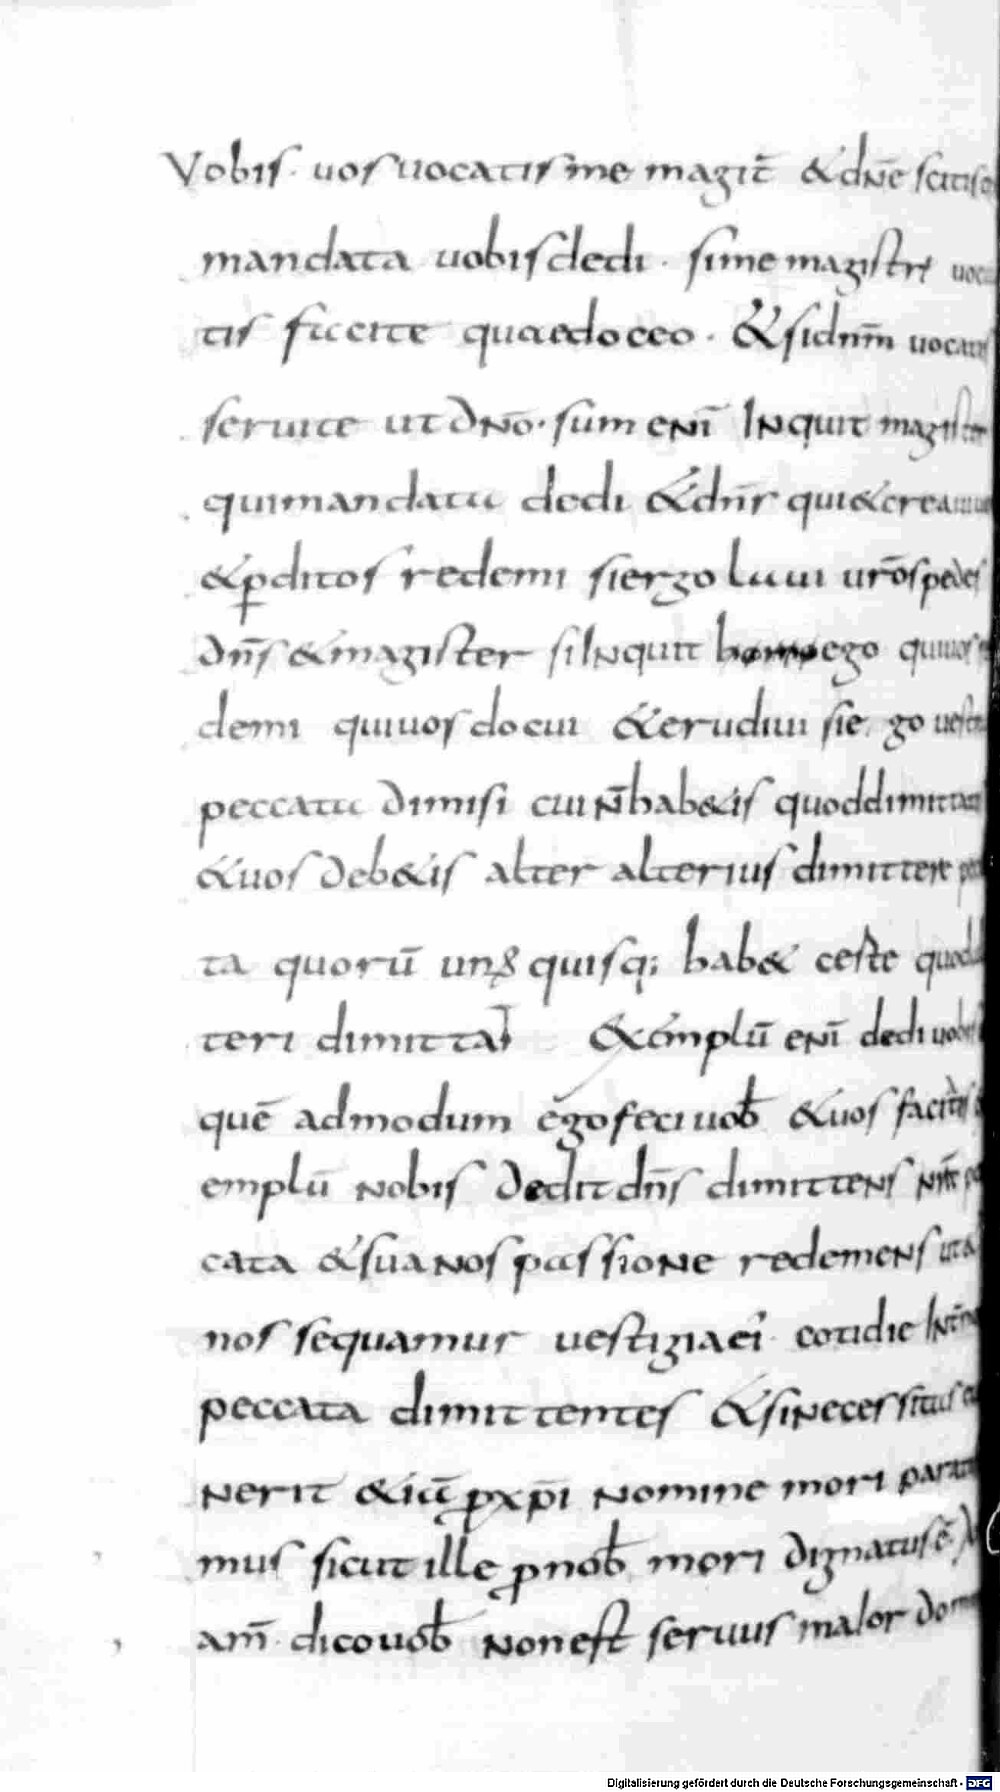 Vobis · uos uocatis me magist̄ & dn̄e scitis
mandata uobis dedi · si me magistri
tis facite quae doceo · & si dnm̄ uocatis
seruite ut dn̄o · sum eni̅ Inquit magister
qui mandata dedi & dn̄s qui & creaui
& p̱ditos redemi si ergo laui ur̄os pedes
dn̄s & magister si Inquit homo ego qui uos
demi qui uos docui & erudiui si e go
peccata dimisi cui n̄ hab&is quod dimittam
& uos deb&is alter alterius dimittere
ta quoru̅ unꝰ quisq; hab& certe quod
teri dimittat & emplu̅ eni̅ dedi uobis
que̅ admodum ego feci uob̅ & uos facitis
emplu̅ nobis dedit dn̄s dimittens
cata & sua nos passione redemens ut
nos sequamur uestigia ei' cotidie
peccata dimittentes & si necessitas
nerit &ia̅ ꝓ xp̅i nomine mori parati
mus sicut ille ꝓ nob̅ mori dignatus e̅
am̅ · dico uob̅ non est seruus maior
Digitalisierung gefördert durch die Deutsche Forschungsgemeinschaft - DFG